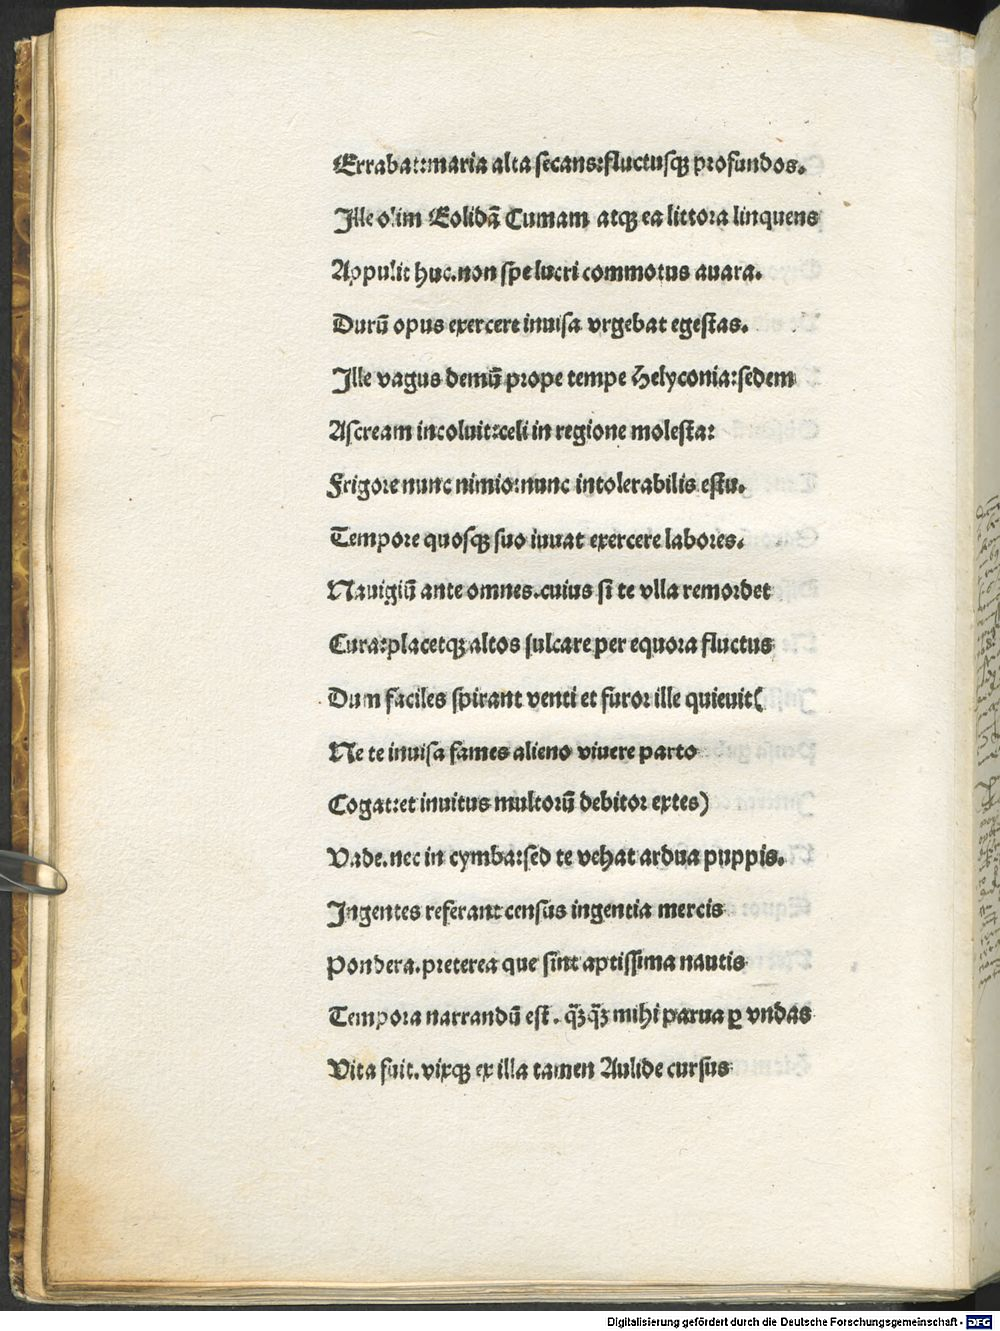 Errabat:maria alta secans:fluctusqꝫ profundos.
Ille olim Eolidã Cumam atqꝫ ea littora linquens
Appulit huc.non spe lucri commotus auara.
Durũ opus exercere inuisa vrgebat egestas.
Ille vagus demũ prope tempe Helyconia:sedem
Ascream incoluit:celi in regione molesta:
Frigore nunc nimio:nunc intolerabilis estu.
Tempore quosqꝫ suo iuuat exercere labores.
Nauigiũ ante omnes.cuius si te vlla remordet
Cura:placetqꝫ altos sulcare per equora fluctus
Dum faciles spirant venti et furor ille quieuit(
Ne te inuisa fames alieno viuere parto
Cogat:et inuitus multorũ debitor extes)
Vade.nec in cymba:sed te vehat ardua puppis.
Ingentes referant census ingentia mercis
Pondera.preterea que sint aptissima nautis
Tempora narrandũ est. qꝫ̃qꝫ̃ mihi parua ꝑ vndas
Vita fuit.vixqꝫ ex illa tamen Aulide cursus
Digitalisierung gefördert durch die Deutsche Forschungsgemeinschaft - DFG